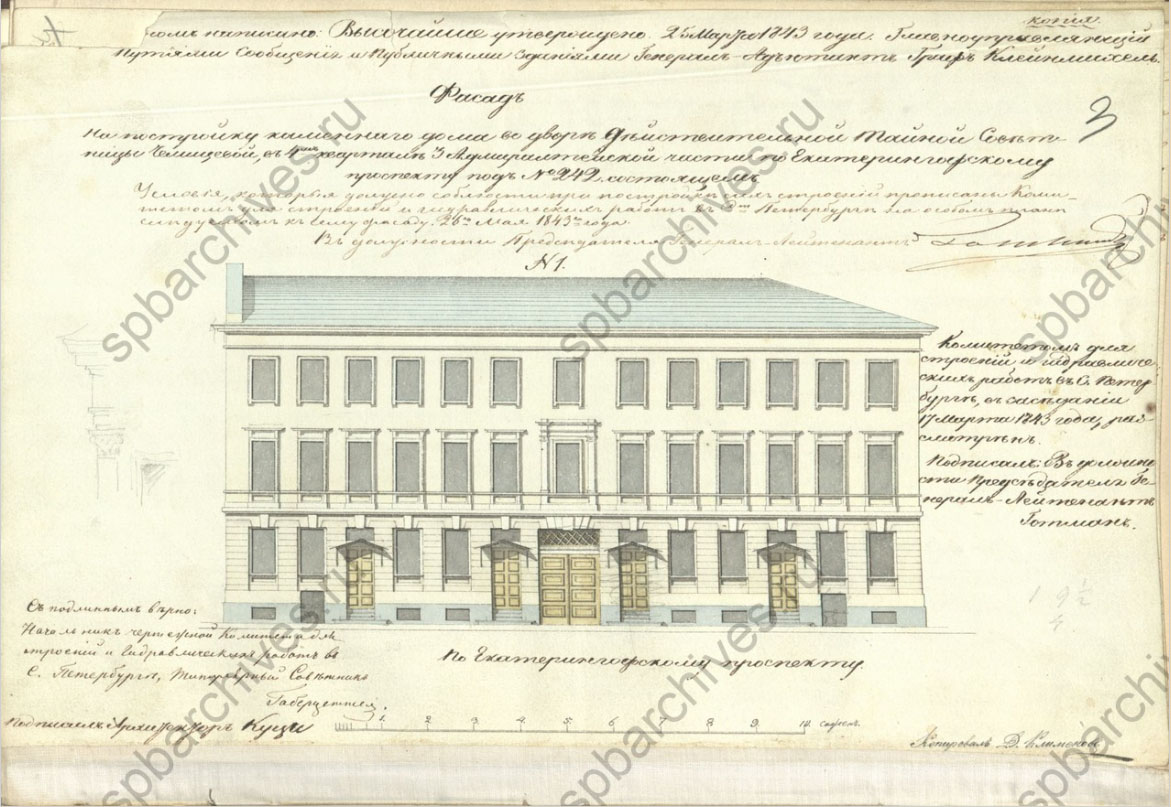 копія.
томъ написано: Высочайше утверждено. 25 Марта 1843 года. Главноуправляющій
Путями Сообщенія и Публичными Зданіями Генералъ-Адъютантъ Графъ Клейнмихель.
Фасадъ
3
На постройку каменнаго дома во дворѣ Дѣйствительной Тайной Совѣт-
ницы Челищевой, въ 4мъ кварталѣ 3 Адмиралтейской части по Екатерингофскому
проспекту подъ № 242 состоящемъ
Условія, которыя должно соблюсти при постройкѣ сихъ строеній прописаны Коми-
тетомъ для строеній и гидравлическихъ работъ въ С. Петербургѣ на особомъ планѣ
слѣдующемъ къ сему фасаду. 26го Мая 1843го года.
Въ должности Предсѣдателя Генералъ-Лейтенантъ Готманъ
N 1.
Комитетомъ для
строеній и гидравличе-
скихъ работъ въ С. Петер-
бургѣ, въ засѣданіи
17 Марта 1843 года, раз-
смотрѣнъ.
Подписалъ: Въ должно-
сти Предсѣдателя Ге-
нералъ-Лейтенантъ
Готманъ.
1 9 1/2
4
Съ подлиннымъ вѣрно:
Начальникъ чертежной Комитета для
строеній и Гидравлическихъ работъ въ
С. Петербургѣ, Титулярный Совѣтникъ
По Екатерингофскому проспекту.
Подписалъ Архитекторъ Куци
1 2 3 4 5 6 7 8 9 10 сажень.
Копировалъ Д. Климовъ
spbarchives.ru
spbarchives.ru
spbarchives.ru
spbarchives.ru
spbarchives.ru
spbarchives.ru